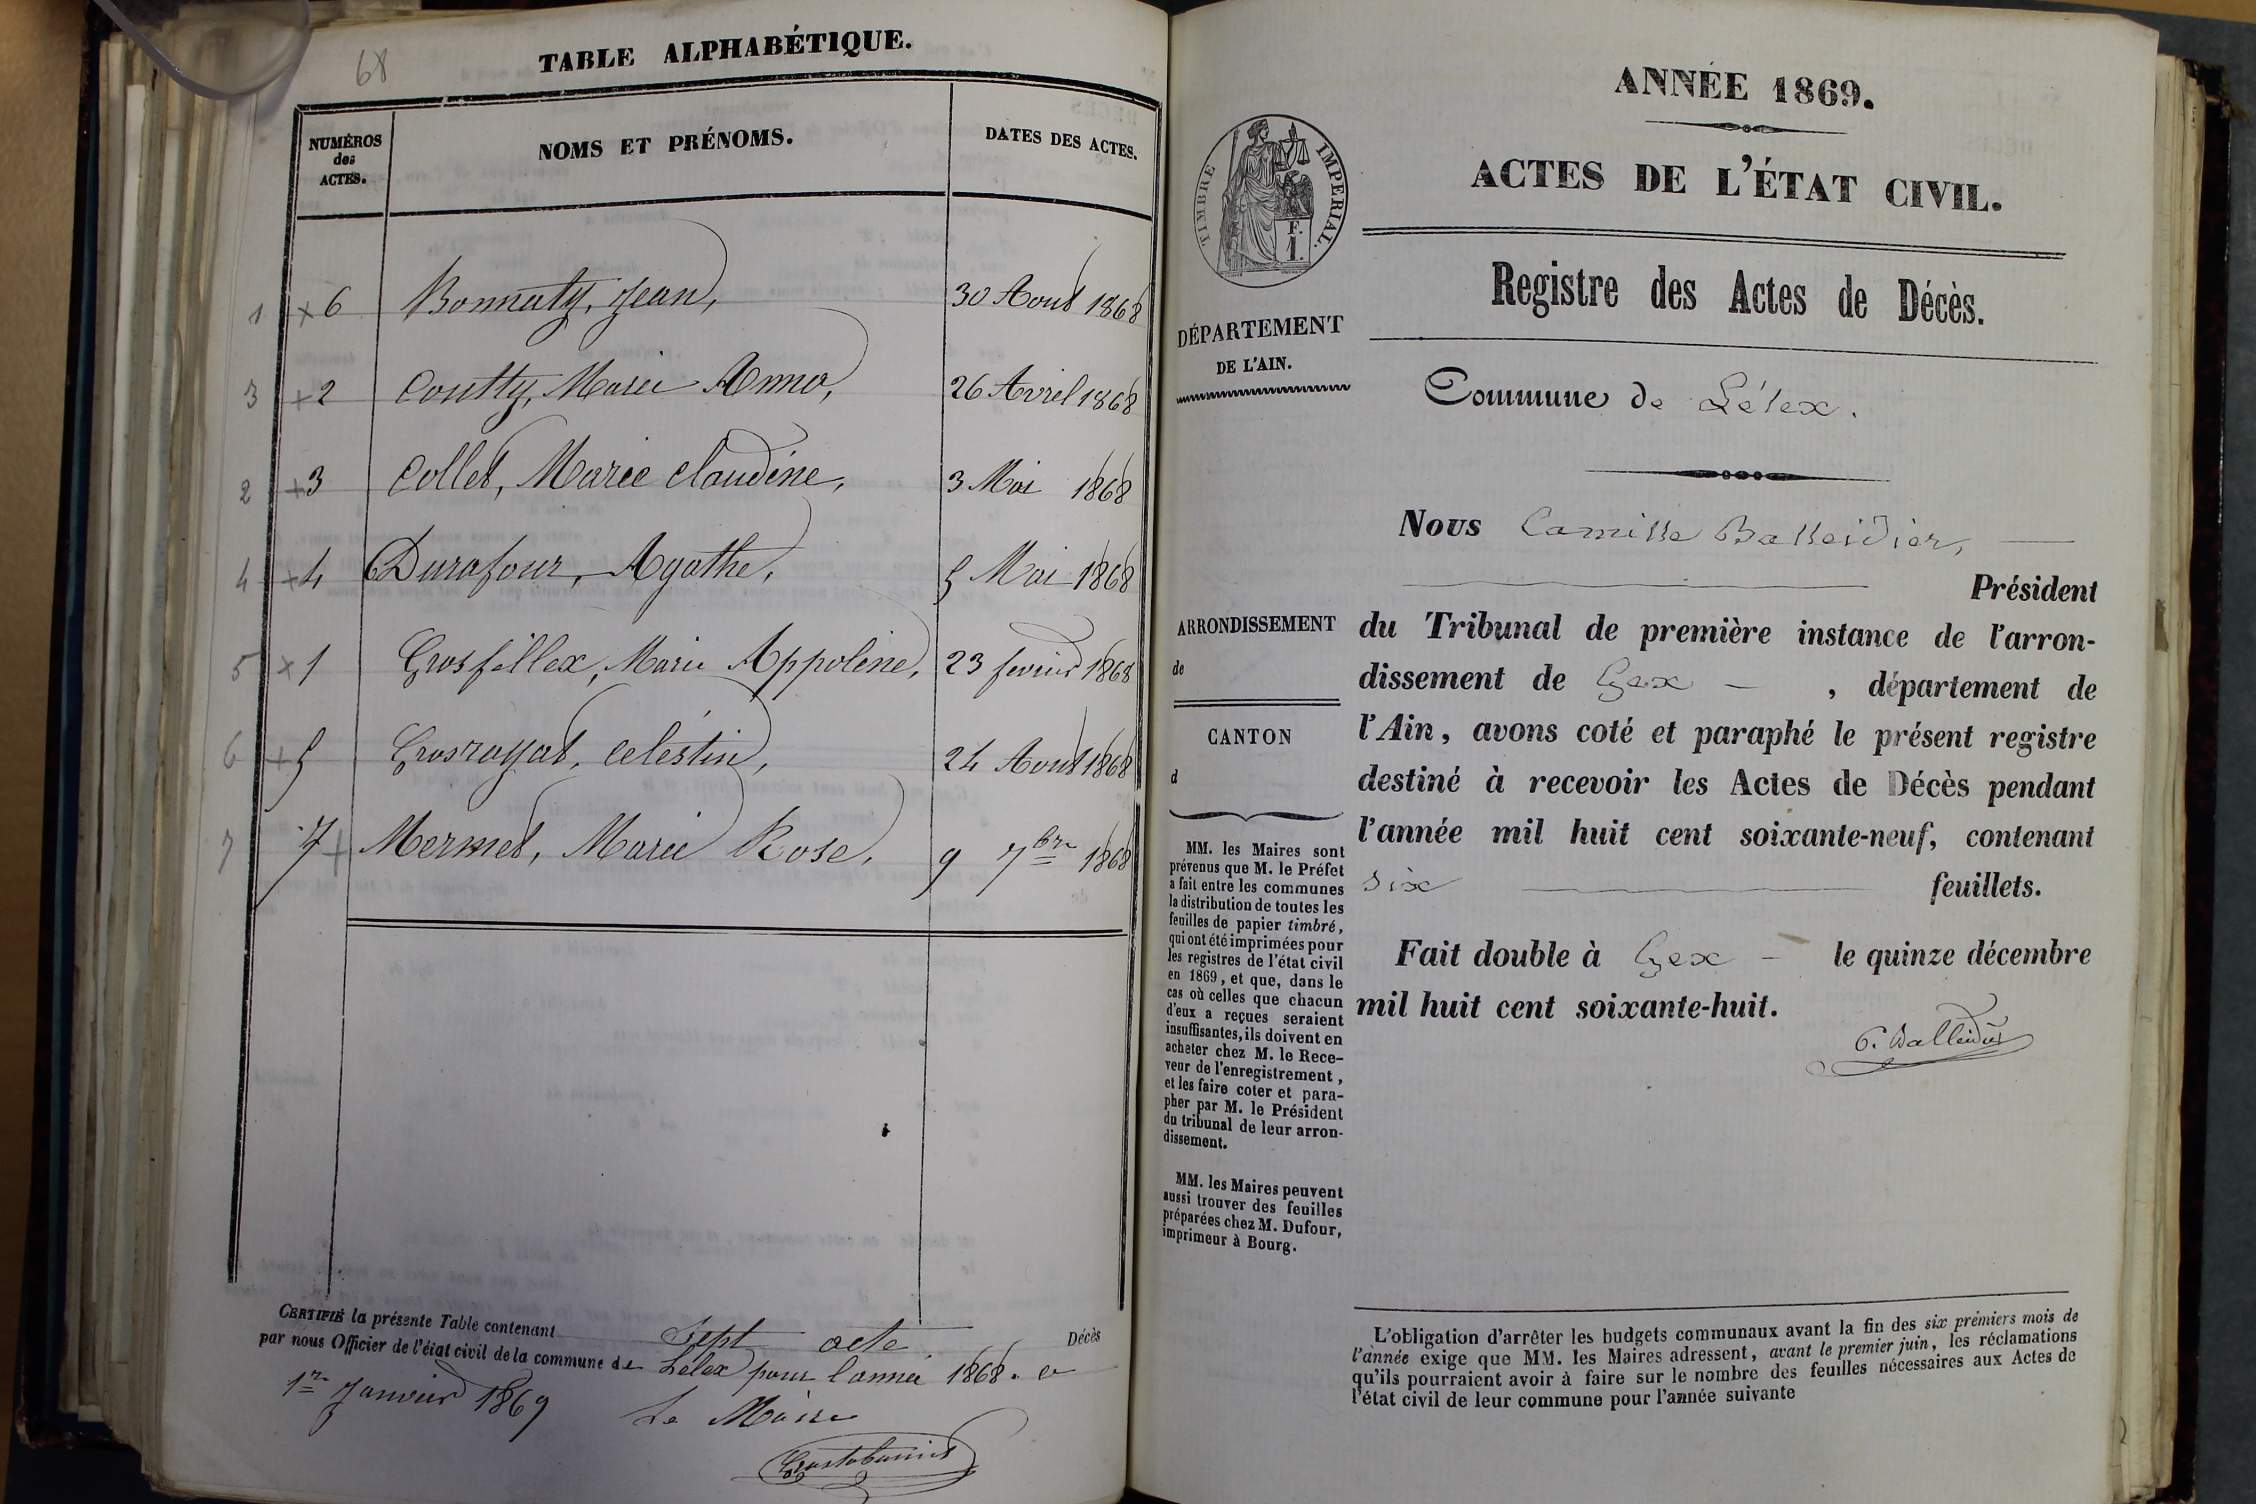 68
TABLE ALPHABÉTIQUE.
NUMÉROS des ACTES.
NOMS ET PRÉNOMS.
DATES DES ACTES.
1 × 6 Bonnaty, Jean, 30 Aout 1868
3 + 2 Coutty, Marie Anna, 26 Avril 1868
2 + 3 Collet, Marie Claudine, 3 Mai 1868
4 × 4 Durafour, Agathe, 5 Mai 1868
5 × 1 Grosfillex, Marie Appoline, 23 fevrier 1868
6 + 5 Grosrayat, Celéstin, 24 Aout 1868
7 7 + Mermet, Marie Rose, 9 7bre 1868
CERTIFIÉ la présente Table contenant Sept acte Décès
par nous Officier de l'état civil de la commune de Lelex pour l'année 1868. ce
1er Janvier 1869 Le Maire
ANNÉE 1869.
ACTES DE L'ÉTAT CIVIL.
TIMBRE IMPERIAL.
F. 1.
Registre des Actes de Décès.
DÉPARTEMENT
DE L'AIN.
Commune de Lélex.
Nous Camille Balleidier,
Président
ARRONDISSEMENT
de
du Tribunal de première instance de l'arron-
dissement de Gex, département de
CANTON
d
l'Ain, avons coté et paraphé le présent registre
destiné à recevoir les Actes de Décès pendant
l'année mil huit cent soixante-neuf, contenant
six feuillets.
Fait double à Gex le quinze décembre
mil huit cent soixante-huit.
C. Balleidier
MM. les Maires sont
prévenus que M. le Préfet
a fait entre les communes
la distribution de toutes les
feuilles de papier timbré,
qui ont été imprimées pour
les registres de l'état civil
en 1869, et que, dans le
cas où celles que chacun
d'eux a reçues seraient
insuffisantes, ils doivent en
acheter chez M. le Rece-
veur de l'enregistrement,
et les faire coter et para-
pher par M. le Président
du tribunal de leur arron-
dissement.
MM. les Maires peuvent
aussi trouver des feuilles
préparées chez M. Dufour,
imprimeur à Bourg.
L'obligation d'arrêter les budgets communaux avant la fin des six premiers mois de
l'année exige que MM. les Maires adressent, avant le premier juin, les réclamations
qu'ils pourraient avoir à faire sur le nombre des feuilles nécessaires aux Actes de
l'état civil de leur commune pour l'année suivante